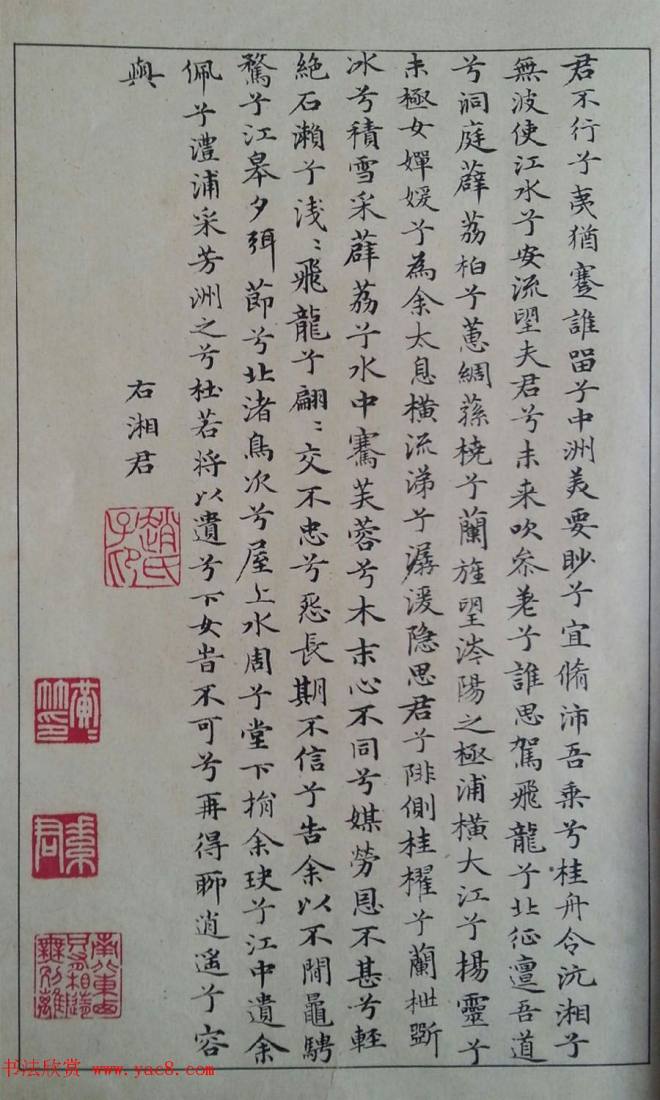 君不行兮夷猶蹇誰留兮中洲美要眇兮宜脩沛吾乘兮桂舟令沅湘兮
無波使江水兮安流望夫君兮未来吹參差兮誰思駕飛龍兮北征邅吾道
兮洞庭薜荔柏兮蕙綢蓀橈兮蘭旌望涔陽之極浦横大江兮揚靈兮
未極女嬋媛兮為余太息横流涕兮潺湲隐思君兮陫側桂櫂兮蘭枻斲
冰兮積雪采薜荔兮水中搴芙蓉兮木末心不同兮媒勞恩不甚兮輕
絶石瀨兮浅〻飛龍兮翩〻交不忠兮怨長期不信兮告余以不閒鼂騁
騖兮江皋夕弭節兮北渚鳥次兮屋上水周兮堂下捐余玦兮江中遺余
佩兮澧浦采芳洲之兮杜若将以遺兮下女旹不可兮再得聊逍遥兮容
與
右湘君
趙氏子印
書法欣赏 www.yac8.com